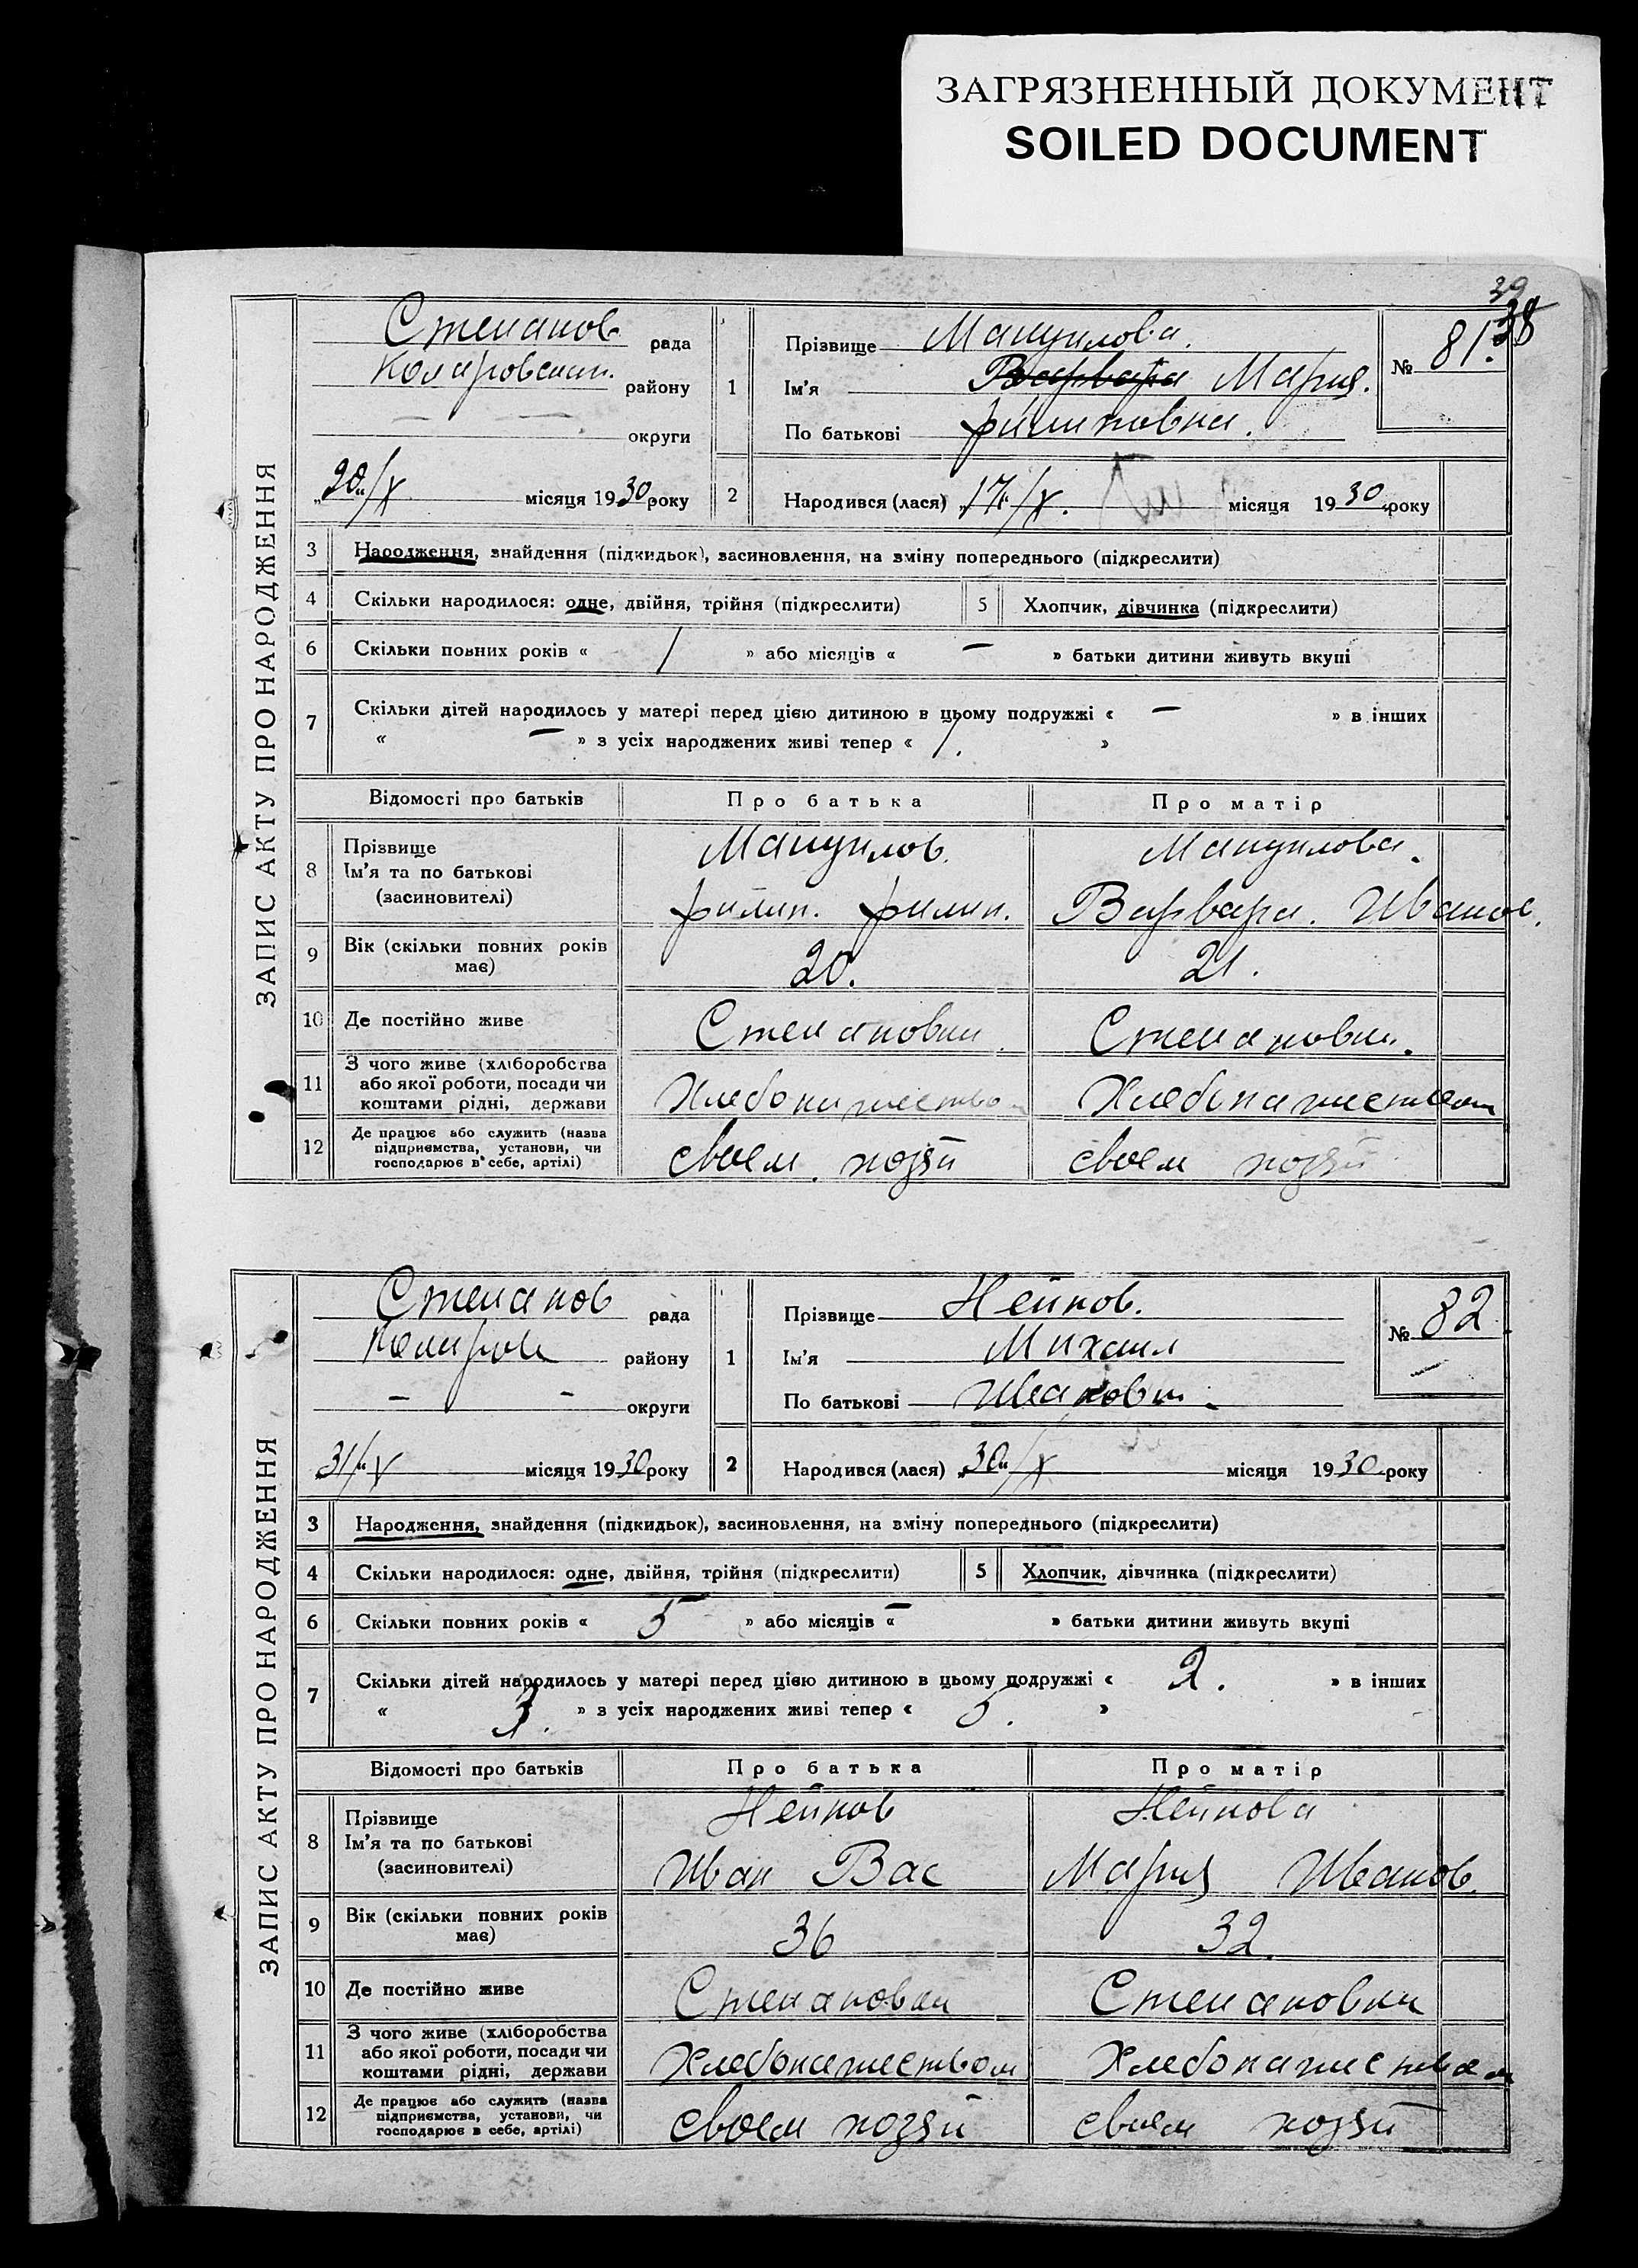 ЗАГРЯЗНЕННЫЙ ДОКУМЕНТ
SOILED DOCUMENT
39
38
ЗАПИС АКТУ ПРО НАРОДЖЕННЯ
Степанов рада
Коларовском району
— — округи
"20"/X місяця 1930 року
1 Прізвище Мануилова.
Ім'я Варвара Мария.
По батькові Филиповна.
№ 81.
2 Народився (лася) "17"/X. місяця 1930 року
3 Народження, знайдення (підкидьок), засиновлення, на зміну попереднього (підкреслити)
4 Скільки народилося: одне, двійня, трійня (підкреслити) 5 Хлопчик, дівчинка (підкреслити)
6 Скільки повних років « 1 » або місяців « — » батьки дитини живуть вкупі
7 Скільки дітей народилось у матері перед цією дитиною в цьому подружжі « — » в інших
« — » з усіх народжених живі тепер « 1. »
Відомості про батьків Про батька Про матір
8 Прізвище Мануилов. Мануилова.
Ім'я та по батькові
(засиновителі) Филип. Филип. Варвара. Иванов.
9 Вік (скільки повних років має) 20. 21.
10 Де постійно живе Степановки. Степановки.
11 З чого живе (хліборобства
або якої роботи, посади чи
коштами рідні, держави Хлебопашеством Хлебопашеством
12 Де працює або служить (назва
підприємства, установи, чи
господарює в себе, артілі) своем хозяй своем хозяй
ЗАПИС АКТУ ПРО НАРОДЖЕННЯ
Степанов рада
Коларов району
— — округи
"31"/X місяця 1930 року
1 Прізвище Нейков.
Ім'я Михаил
По батькові Иванович.
№ 82
2 Народився (лася) "30"/X місяця 1930 року
3 Народження, знайдення (підкидьок), засиновлення, на зміну попереднього (підкреслити)
4 Скільки народилося: одне, двійня, трійня (підкреслити) 5 Хлопчик, дівчинка (підкреслити)
6 Скільки повних років « 5 » або місяців « — » батьки дитини живуть вкупі
7 Скільки дітей народилось у матері перед цією дитиною в цьому подружжі « 2. » в інших
« 3. » з усіх народжених живі тепер « 5. »
Відомості про батьків Про батька Про матір
8 Прізвище Нейков Нейкова
Ім'я та по батькові
(засиновителі) Иван Вас Мария Иванов.
9 Вік (скільки повних років має) 36 32.
10 Де постійно живе Степановки Степановки
11 З чого живе (хліборобства
або якої роботи, посади чи
коштами рідні, держави Хлебопашеством Хлебопашеством
12 Де працює або служить (назва
підприємства, установи, чи
господарює в себе, артілі) своем хозяй своем хозяй